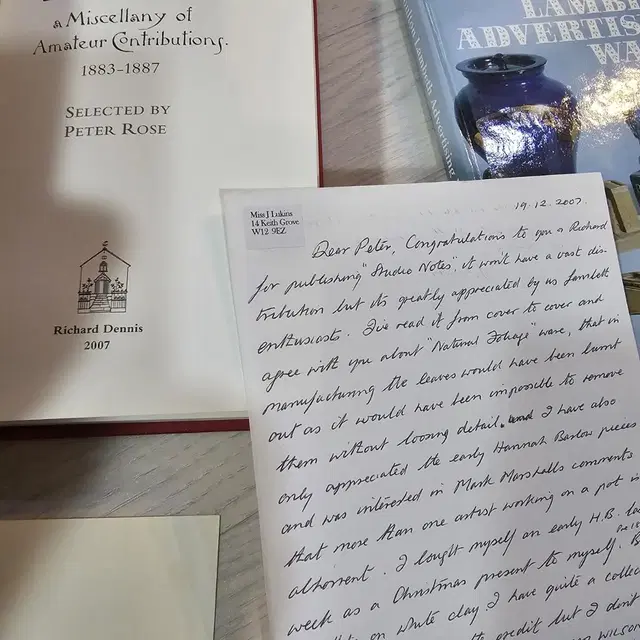 a Miscellany of
Amateur Contributions.
1883-1887
SELECTED BY
PETER ROSE
Richard Dennis
2007
LAMBE
ADVERTIS
WA
Lambeth Advertising
Miss J Lukins
14 Keith Grove
W12 9EZ
19.12.2007.
Dear Peter, Congratulations to you & Richard
for publishing "Studio Notes", it won't have a vast dis-
tribution but its greatly appreciated by us Lambeth
enthusiasts. I've read it from cover to cover and
agree with you about "Natural Foliage" ware, that in
manufacturing the leaves would have been burnt
out as it would have been impossible to remove
them without loosing detail. I have also
only appreciated the early Hannah Barlow pieces
and was interested in Mark Marshalls comments
that more than one artist working on a pot is
abhorrent. I bought myself an early H.B. la
week as a Christmas present to myself.
on white clay, I have quite a collec
credit but I don't
WILSON